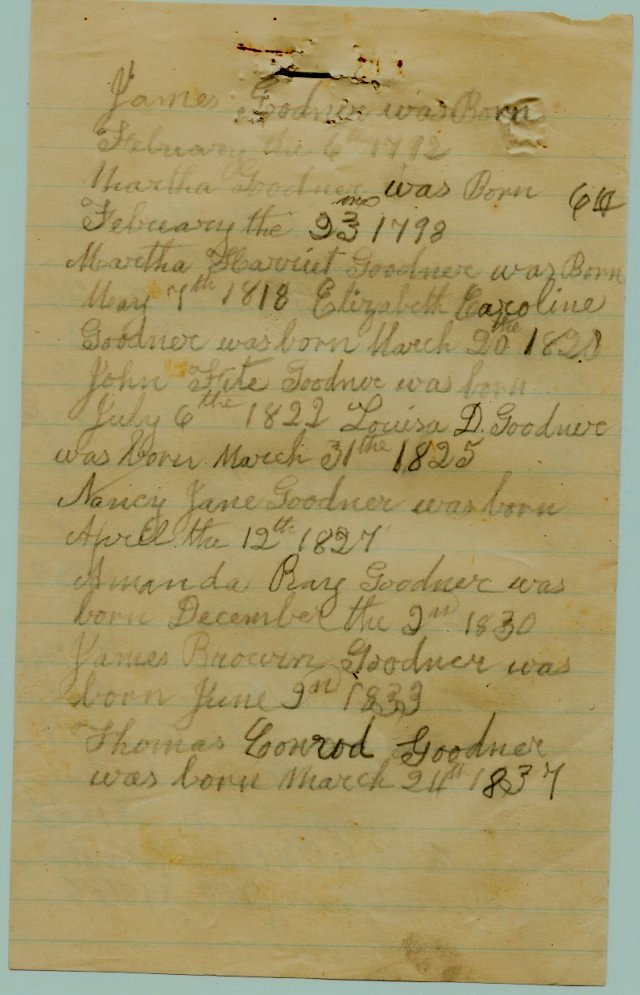 James Goodner was Born
February the 6th 1792
Martha Goodner was Born 64
February the 23 1798
Martha Harriet Goodner was Born
May 7th 1818 Elizabeth Caroline
Goodner was born March 20the 1820
John Fite Goodner was born
July 6the 1822 Louisa D. Goodner
was born March 31the 1825
Nancy Jane Goodner was born
April the 12th 1827
Amanda Ray Goodner was
born December the 2n 1830
James Brown Goodner was
born June 2n 1833
Thomas Conrod Goodner
was born March 24th 1837